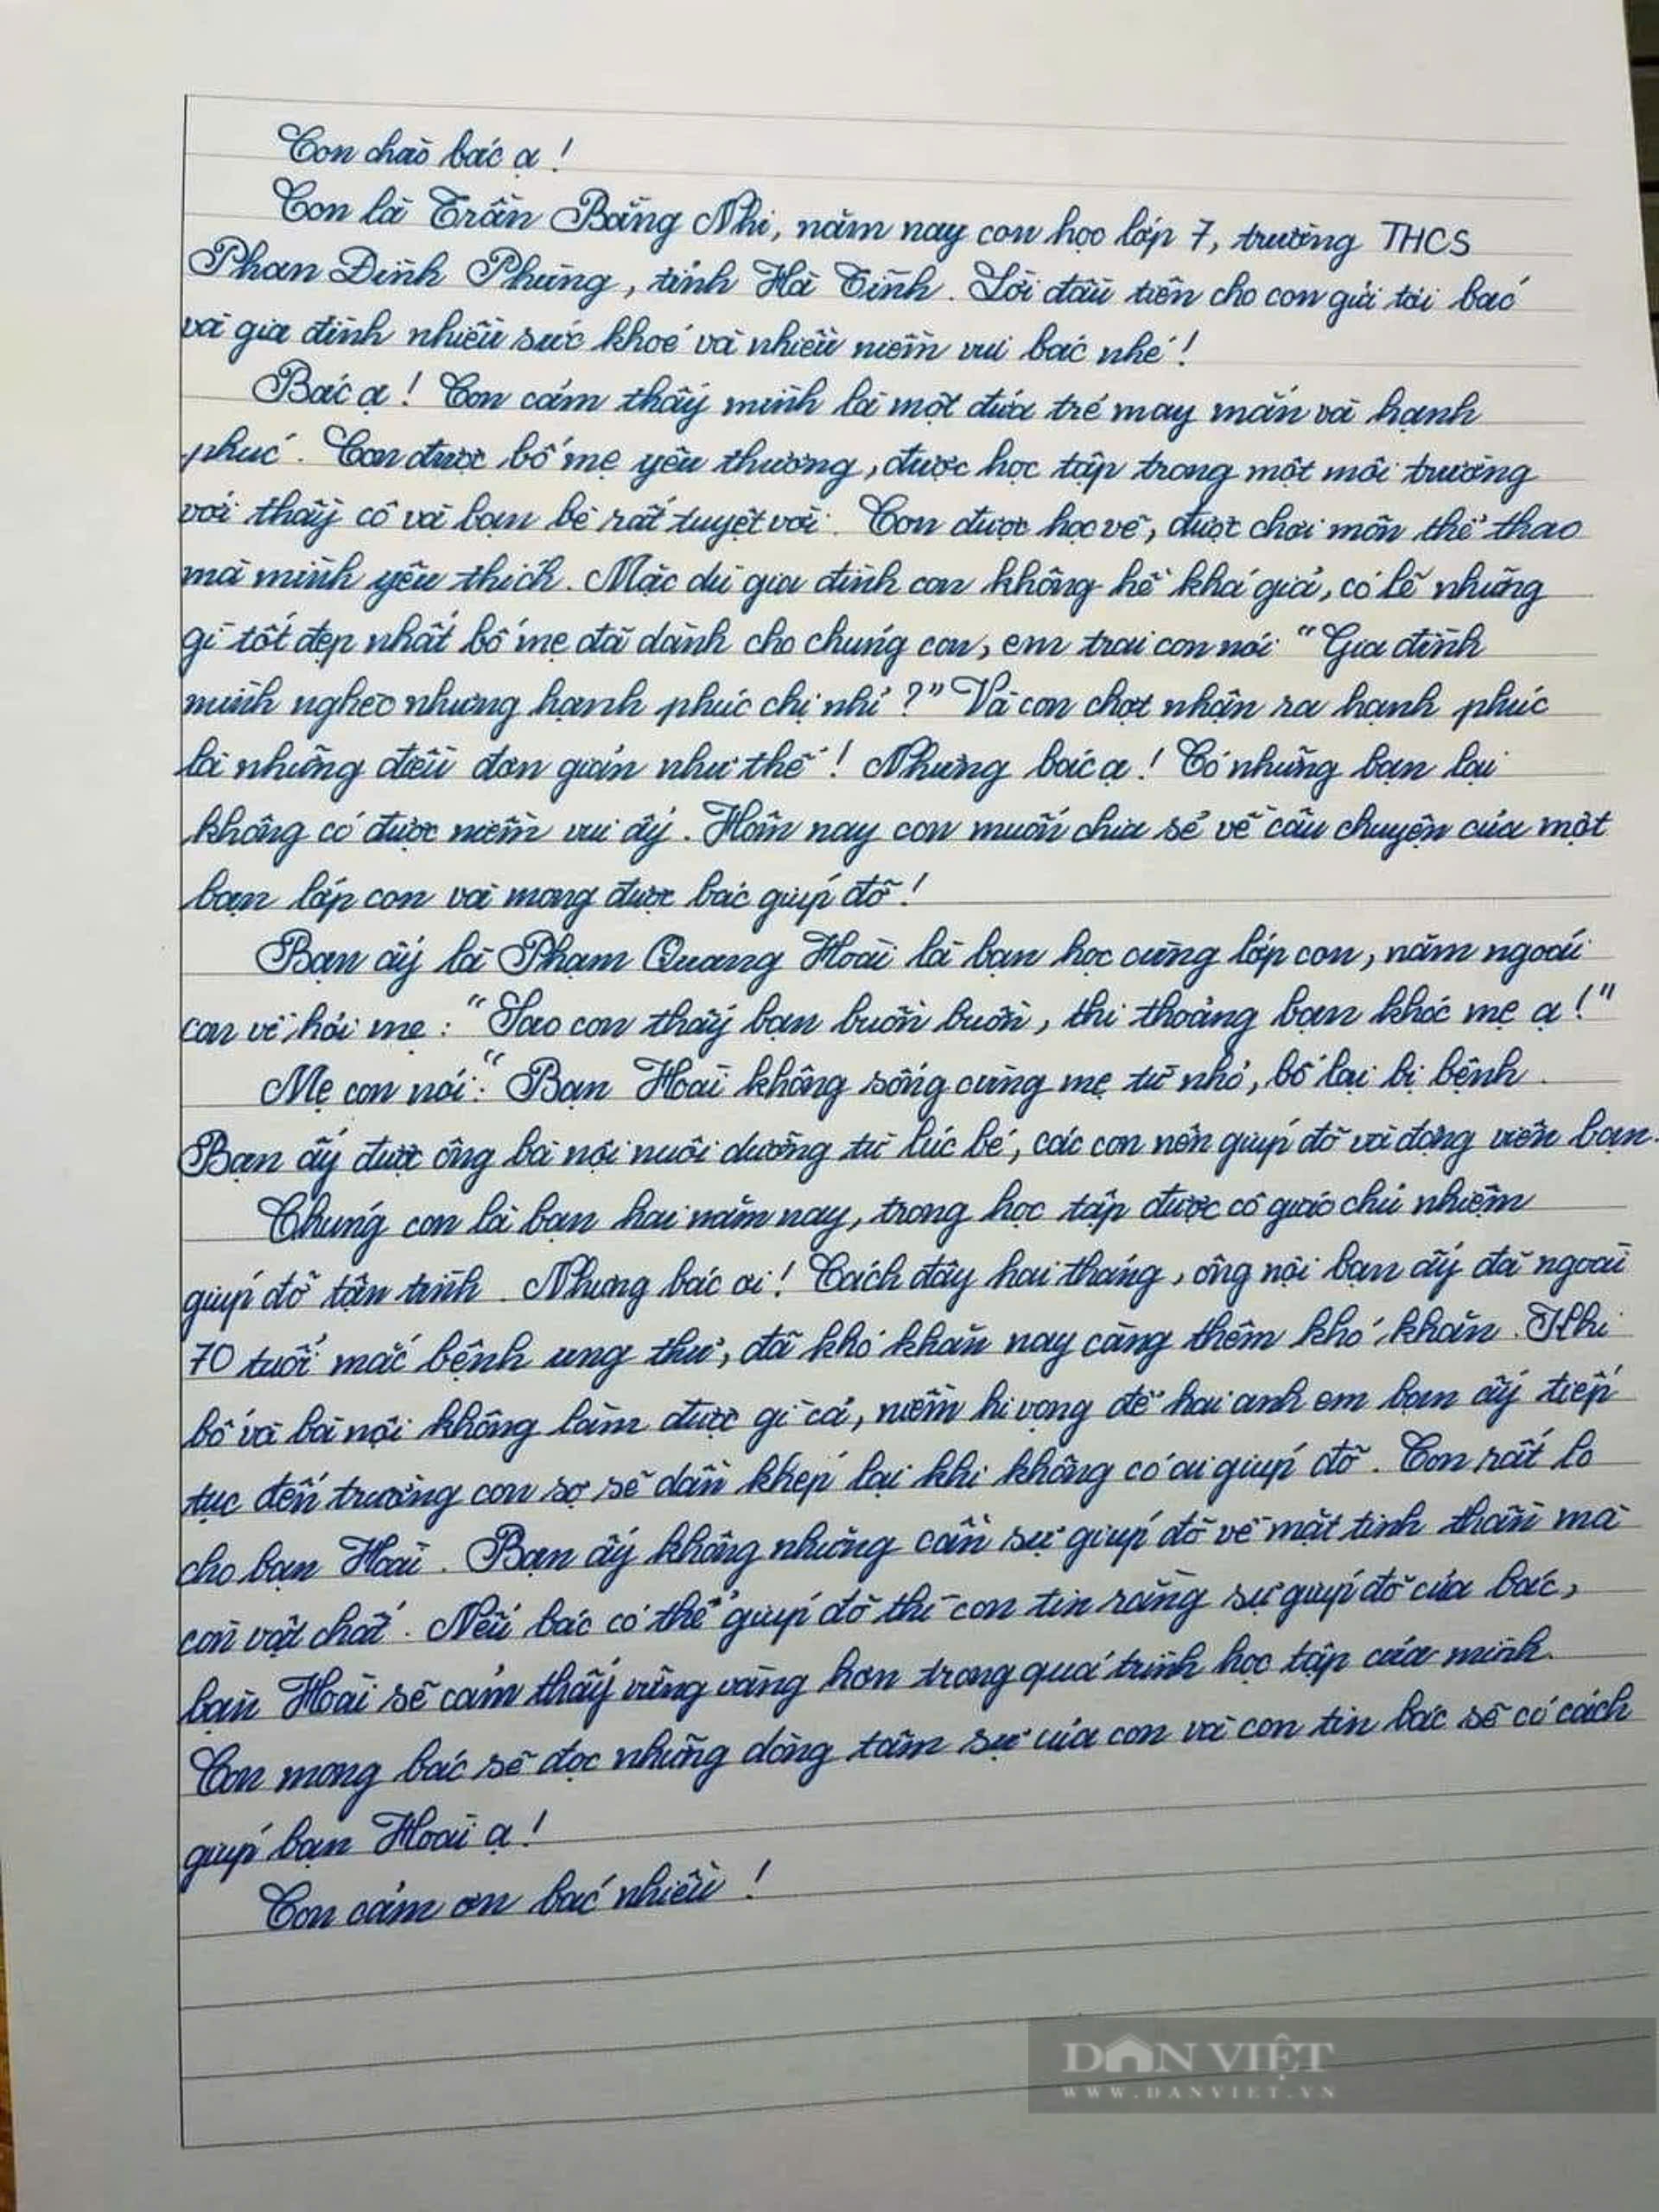 Con chào bác ạ!
Con là Trần Băng Nhi, năm nay con học lớp 7, trường THCS
Phan Đình Phùng, tỉnh Hà Tĩnh. Lời đầu tiên cho con gửi tới bác
và gia đình nhiều sức khoẻ và nhiều niềm vui bác nhé!
Bác ạ! Con cảm thấy mình là một đứa trẻ may mắn và hạnh
phúc. Con được bố mẹ yêu thương, được học tập trong một môi trường
với thầy cô và bạn bè rất tuyệt vời. Con được học vẽ, được chơi môn thể thao
mà mình yêu thích. Mặc dù gia đình con không hề khá giả, có lẽ những
gì tốt đẹp nhất bố mẹ đã dành cho chúng con, em trai con nói "Gia đình
mình nghèo nhưng hạnh phúc chị nhỉ?" Và con chợt nhận ra hạnh phúc
là những điều đơn giản như thế! Nhưng bác ạ! Có những bạn lại
không có được niềm vui ấy. Hôm nay con muốn chia sẻ về câu chuyện của một
bạn lớp con và mong được bác giúp đỡ!
Bạn ấy là Phạm Quang Hoài là bạn học cùng lớp con, năm ngoái
con về hỏi mẹ: "Sao con thấy bạn buồn buồn, thi thoảng bạn khóc mẹ ạ!"
Mẹ con nói: "Bạn Hoài không sống cùng mẹ từ nhỏ, bố lại bị bệnh.
Bạn ấy được ông bà nội nuôi dưỡng từ lúc bé, các con nên giúp đỡ và động viên bạn.
Chúng con là bạn hai năm nay, trong học tập được cô giáo chủ nhiệm
giúp đỡ tận tình. Nhưng bác ơi! Cách đây hai tháng, ông nội bạn ấy đã ngoài
70 tuổi mắc bệnh ung thư, đã khó khăn nay càng thêm khó khăn. Khi
bố và bà nội không làm được gì cả, niềm hi vọng để hai anh em bạn ấy tiếp
tục đến trường con sợ sẽ dần khép lại khi không có ai giúp đỡ. Con rất lo
cho bạn Hoài. Bạn ấy không những cần sự giúp đỡ về mặt tinh thần mà
còn vật chất. Nếu bác có thể giúp đỡ thì con tin rằng sự giúp đỡ của bác,
bạn Hoài sẽ cảm thấy vững vàng hơn trong quá trình học tập của mình.
Con mong bác sẽ đọc những dòng tâm sự của con và con tin bác sẽ có cách
giúp bạn Hoài ạ!
Con cảm ơn bác nhiều!
DÂN VIỆT
WWW.DANVIET.VN